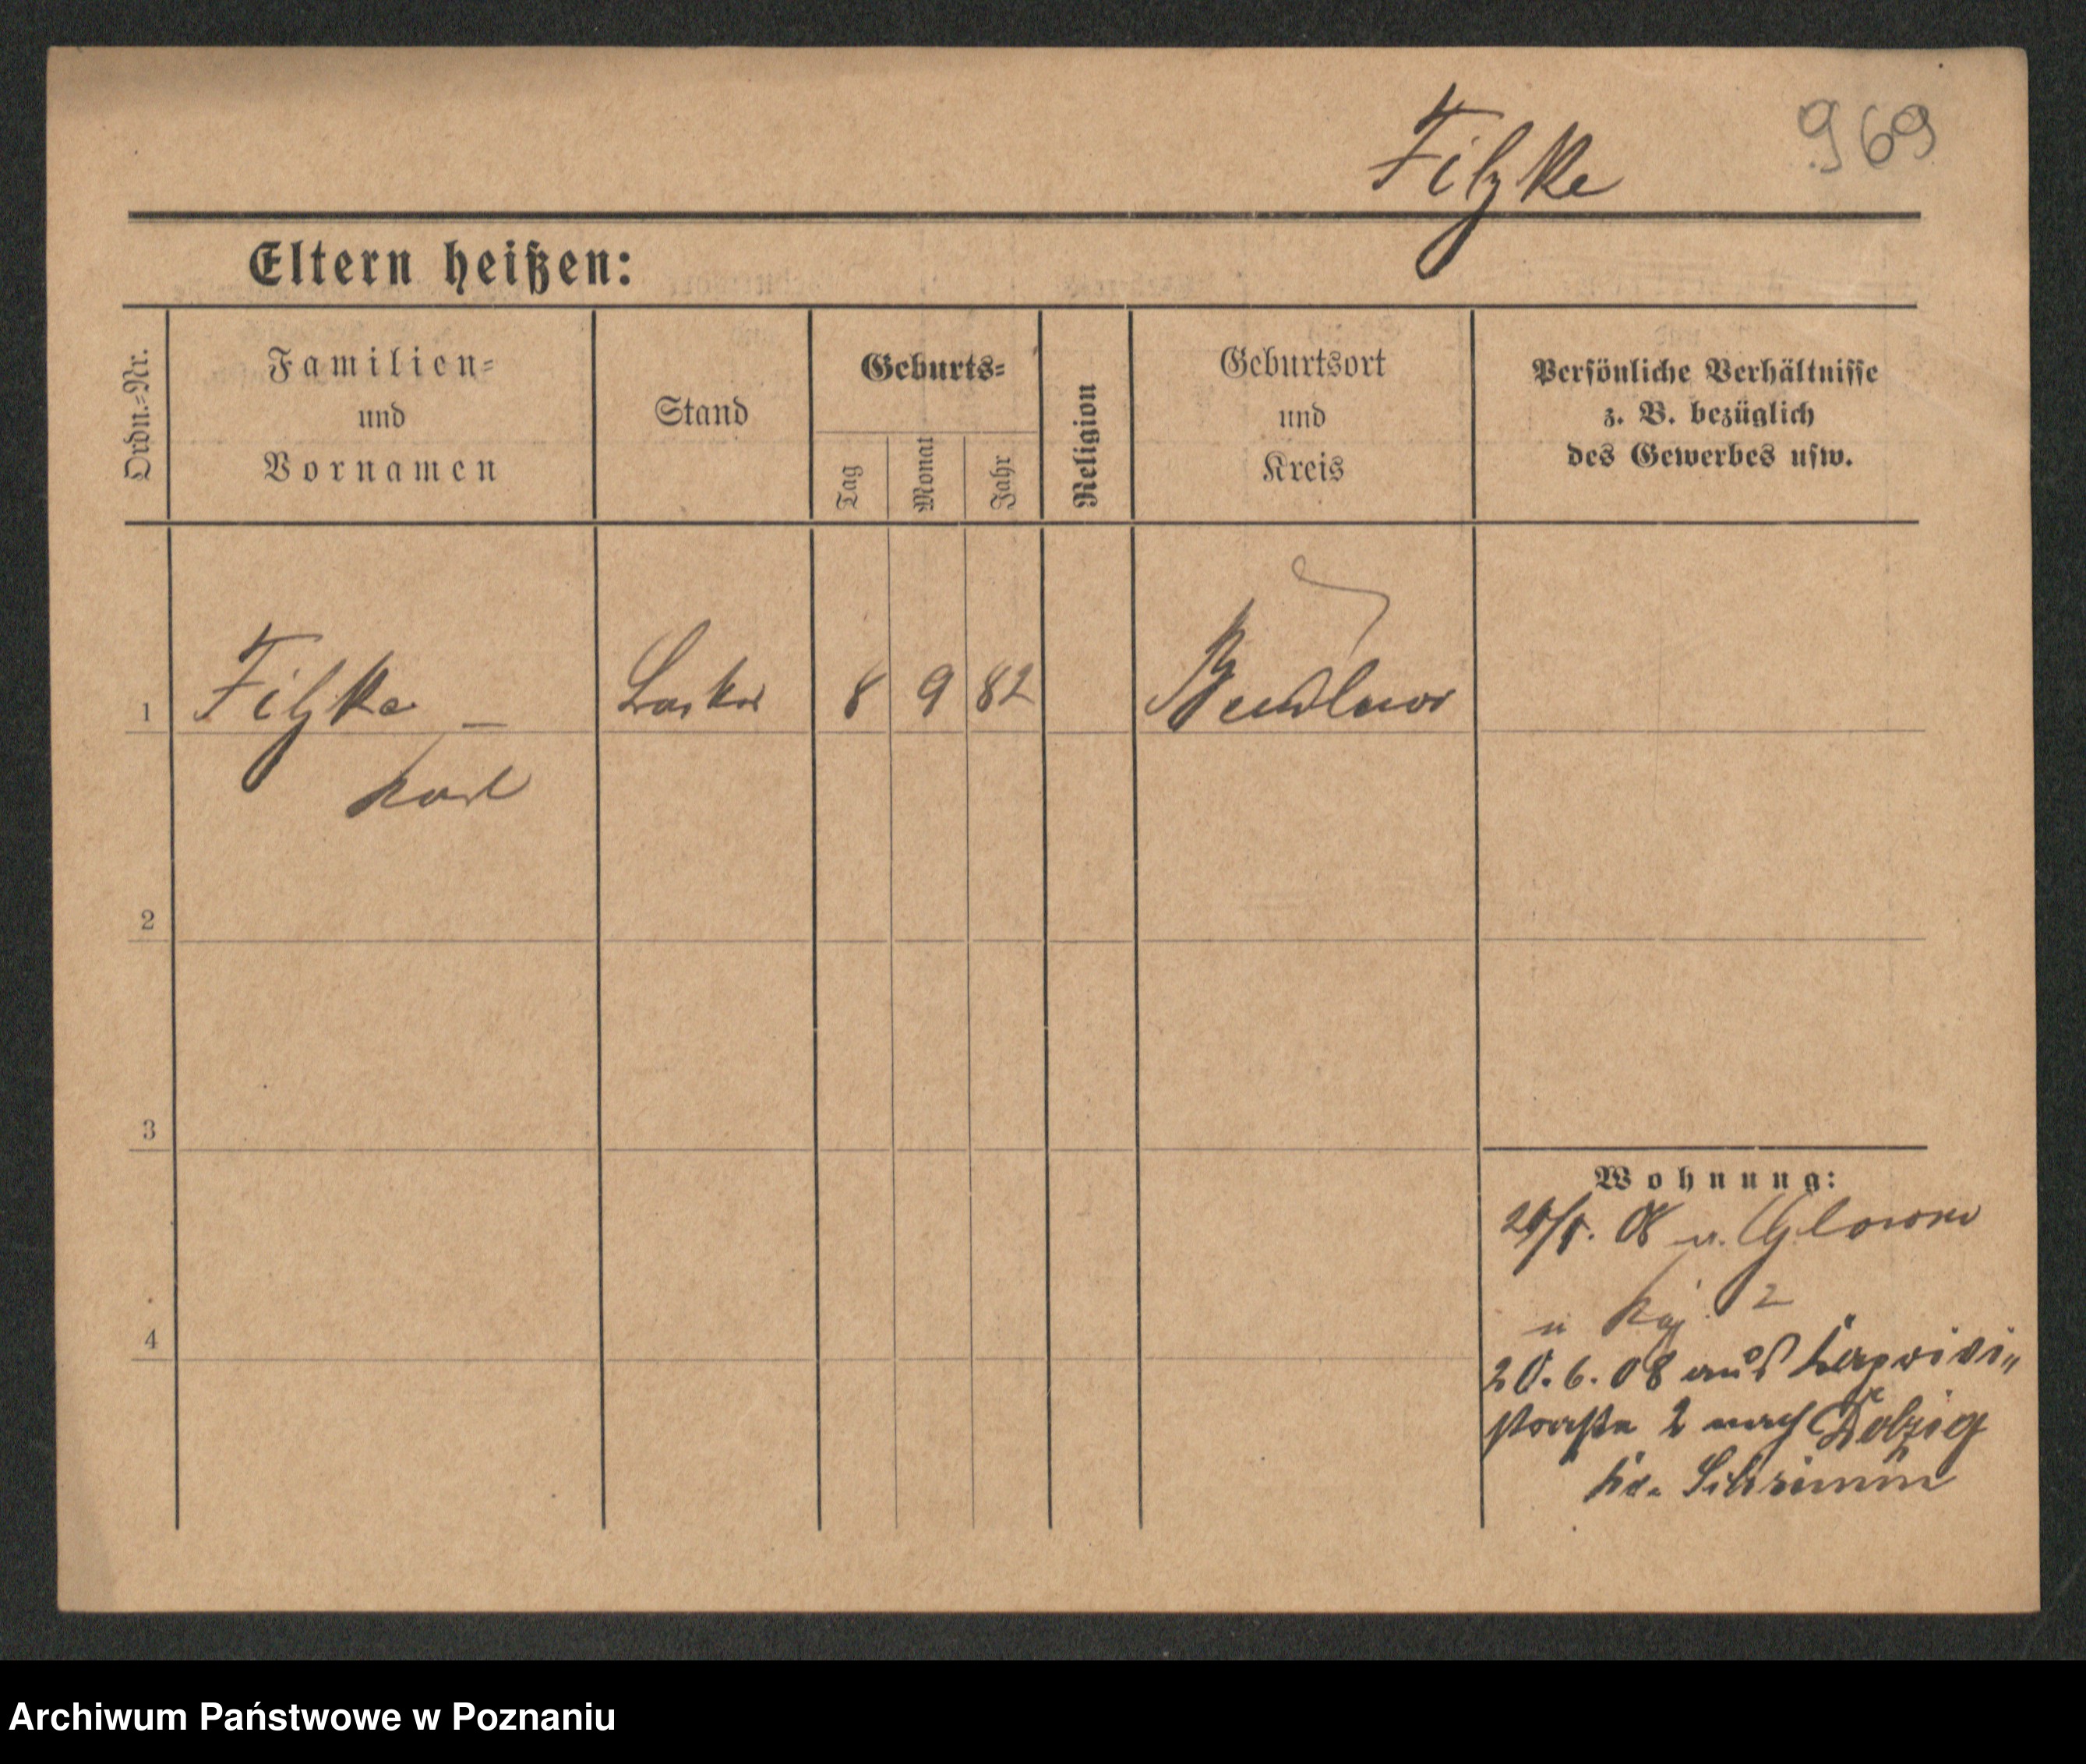 Filzke 969
Eltern heißen:
Ordn.-Nr.
Familien-
und
Vornamen
Stand
Geburts-
Tag
Monat
Jahr
Religion
Geburtsort
und
Kreis
Persönliche Verhältnisse
z. B. bezüglich
des Gewerbes usw.
1 Filzke 8 9 82
Karl
2
3
4
Wohnung:
08 Glowno
2
20.6.08 aus
straße 2 nach Dolzig
Kr. Schrimm
Archiwum Państwowe w Poznaniu